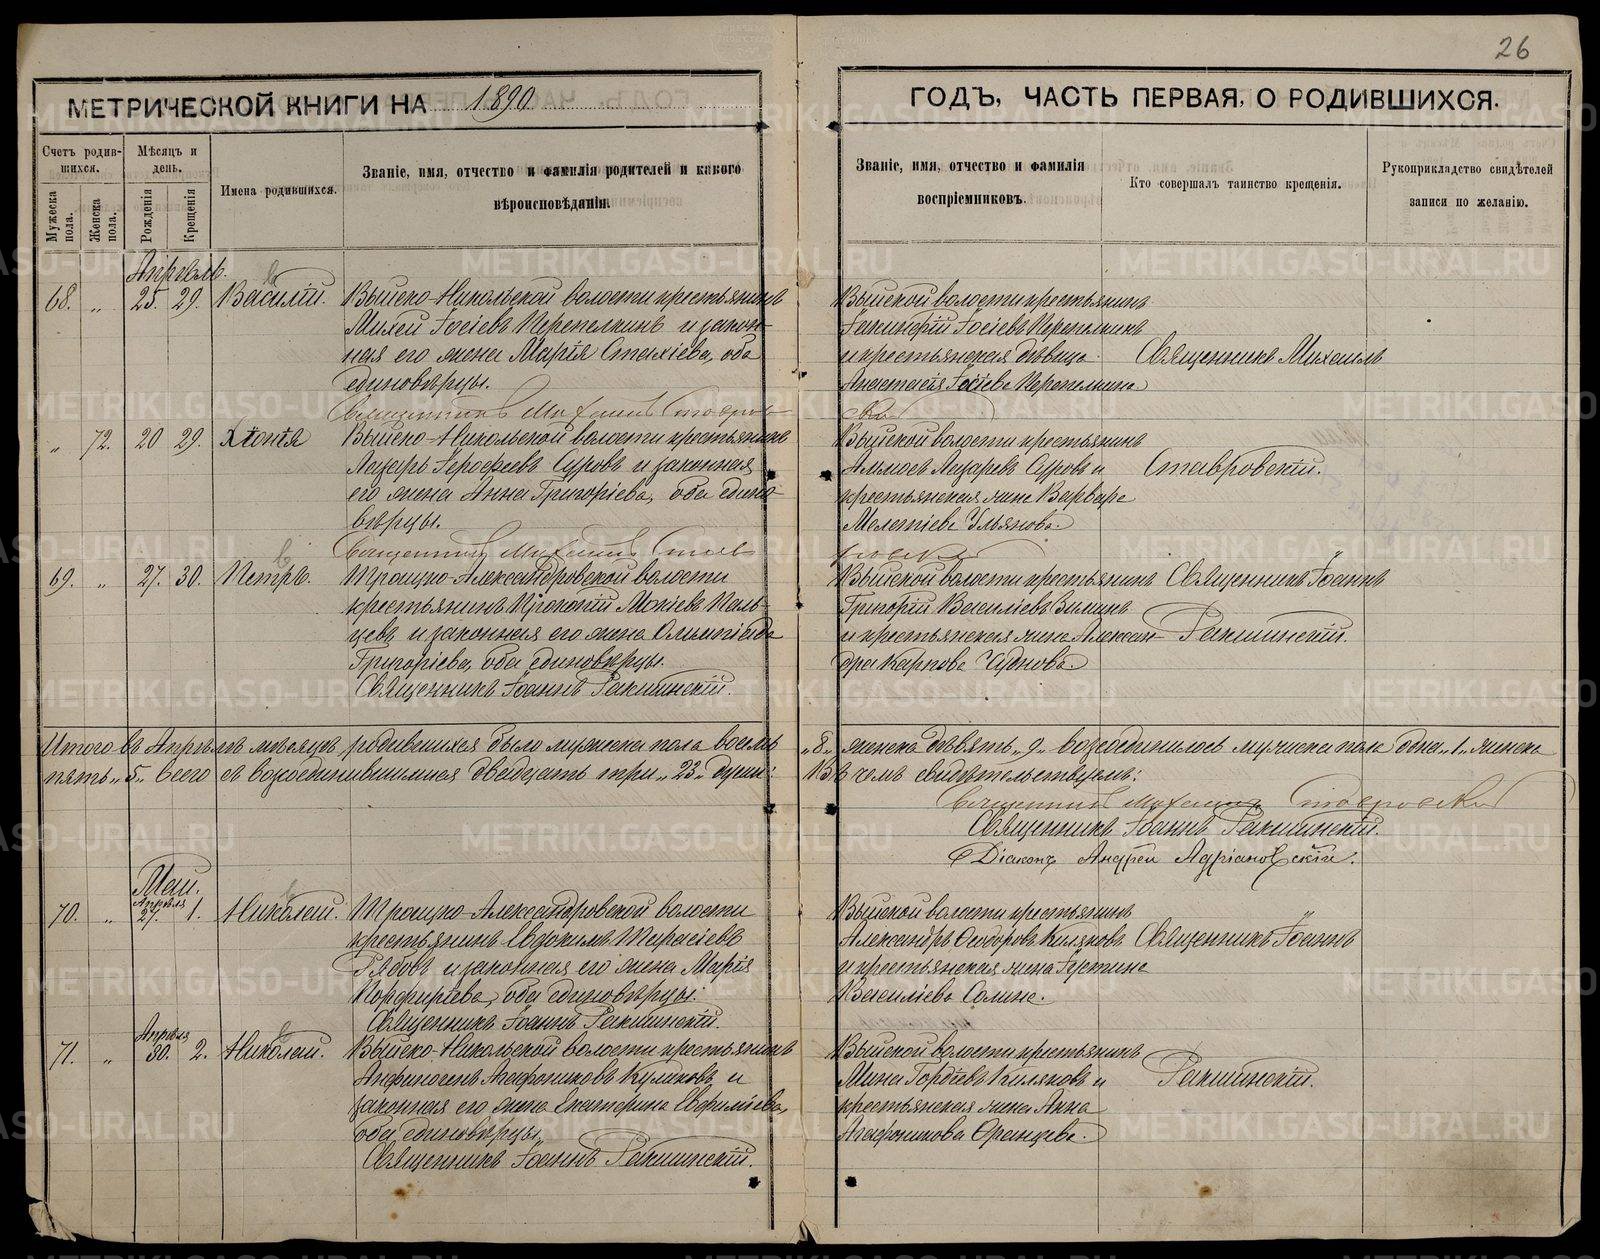 26
МЕТРИЧЕСКОЙ КНИГИ НА 1890
ГОДЪ, ЧАСТЬ ПЕРВАЯ, О РОДИВШИХСЯ.
Счетъ родив-
шихся.
Мужеска пола.
Женска пола.
Мѣсяцъ и
день.
Рожденія
Крещенія
Имена родившихся.
Званіе, имя, отчество и фамилія родителей и какого
вѣроисповѣданія.
Званіе, имя, отчество и фамилія
воспріемниковъ.
Кто совершалъ таинство крещенія.
Рукоприкладство свидѣтелей
записи по желанію.
Апрѣль.
68. „ 25. 29. Василій.
Выйско-Никольской волости крестьянинъ
Михей Іосіевъ Перепелкинъ и закон-
ная его жена Марія Стахіева, оба
единовѣрцы.
Священникъ Михаилъ Ставров-
Выйской волости крестьянинъ
Іакинфій Іосіевъ Перепелкинъ
и крестьянская дѣвица
Анастасія Іосіева Перепелкина
ский
Священникъ Михаилъ
„ 72. 20 29. Хіонія
Выйско-Никольской волости крестьянинъ
Лазарь Іерофеевъ Суровъ и законная
его жена Анна Григоріева, оба едино-
вѣрцы.
Священникъ Михаилъ Став
Выйской волости крестьянинъ
Лазаревъ Суровъ и
крестьянская жена Варвара
Мелетіева Ульянова.
ровский
Ставровскій.
69. „ 27. 30. Петръ.
Троицко-Александровской волости
крестьянинъ Прокопій Мокіевъ Паль-
цевъ и законная его жена Олимпіада
Григоріева, оба единовѣрцы.
Священникъ Іоаннъ Ракшинскій.
Выйской волости крестьянинъ
Григорій Василіевъ Зиминъ
и крестьянская жена Алексан-
дра Карпова Чуднова.
Священникъ Іоаннъ
Ракшинскій.
Итого въ Апрѣлѣ мѣсяцѣ родившихся было мужска пола восемь
„8„ женска дѣвять „9„ возсоединилось мужска пола одна „1„ женска
пять „5„ всего съ возсоединившимися двадцать три „23„ души:
Въ чемъ свидѣтельствуемъ:
Священникъ Михаилъ Ставровский
Священникъ Іоаннъ Ракшинскій.
Діаконъ Андрей Адріановскій.
Май.
Апрѣля
70. „ 27. 1. Николай.
Троицко-Александровской волости
крестьянинъ Евдокимъ Тарасіевъ
Рябовъ и законная его жена Марія
Порфиріева, оба единовѣрцы.
Священникъ Іоаннъ Ракшинскій.
Выйской волости крестьянинъ
Александръ Ѳеодоровъ Киляковъ
и крестьянская жена Іустина
Василіева Солина.
Священникъ Іоаннъ
Апрѣля
71. „ 30. 2. Николай.
Выйско-Никольской волости крестьянинъ
Анфиногенъ Агафониковъ Куликовъ и
законная его жена Екатерина Евфиміева,
оба единовѣрцы.
Священникъ Іоаннъ Ракшинскій.
Выйской волости крестьянинъ
Мина Гордѣевъ Киляковъ и
крестьянская жена Анна
Агафоникова
Ракшинскій.
METRIKI.GASO-URAL.RU